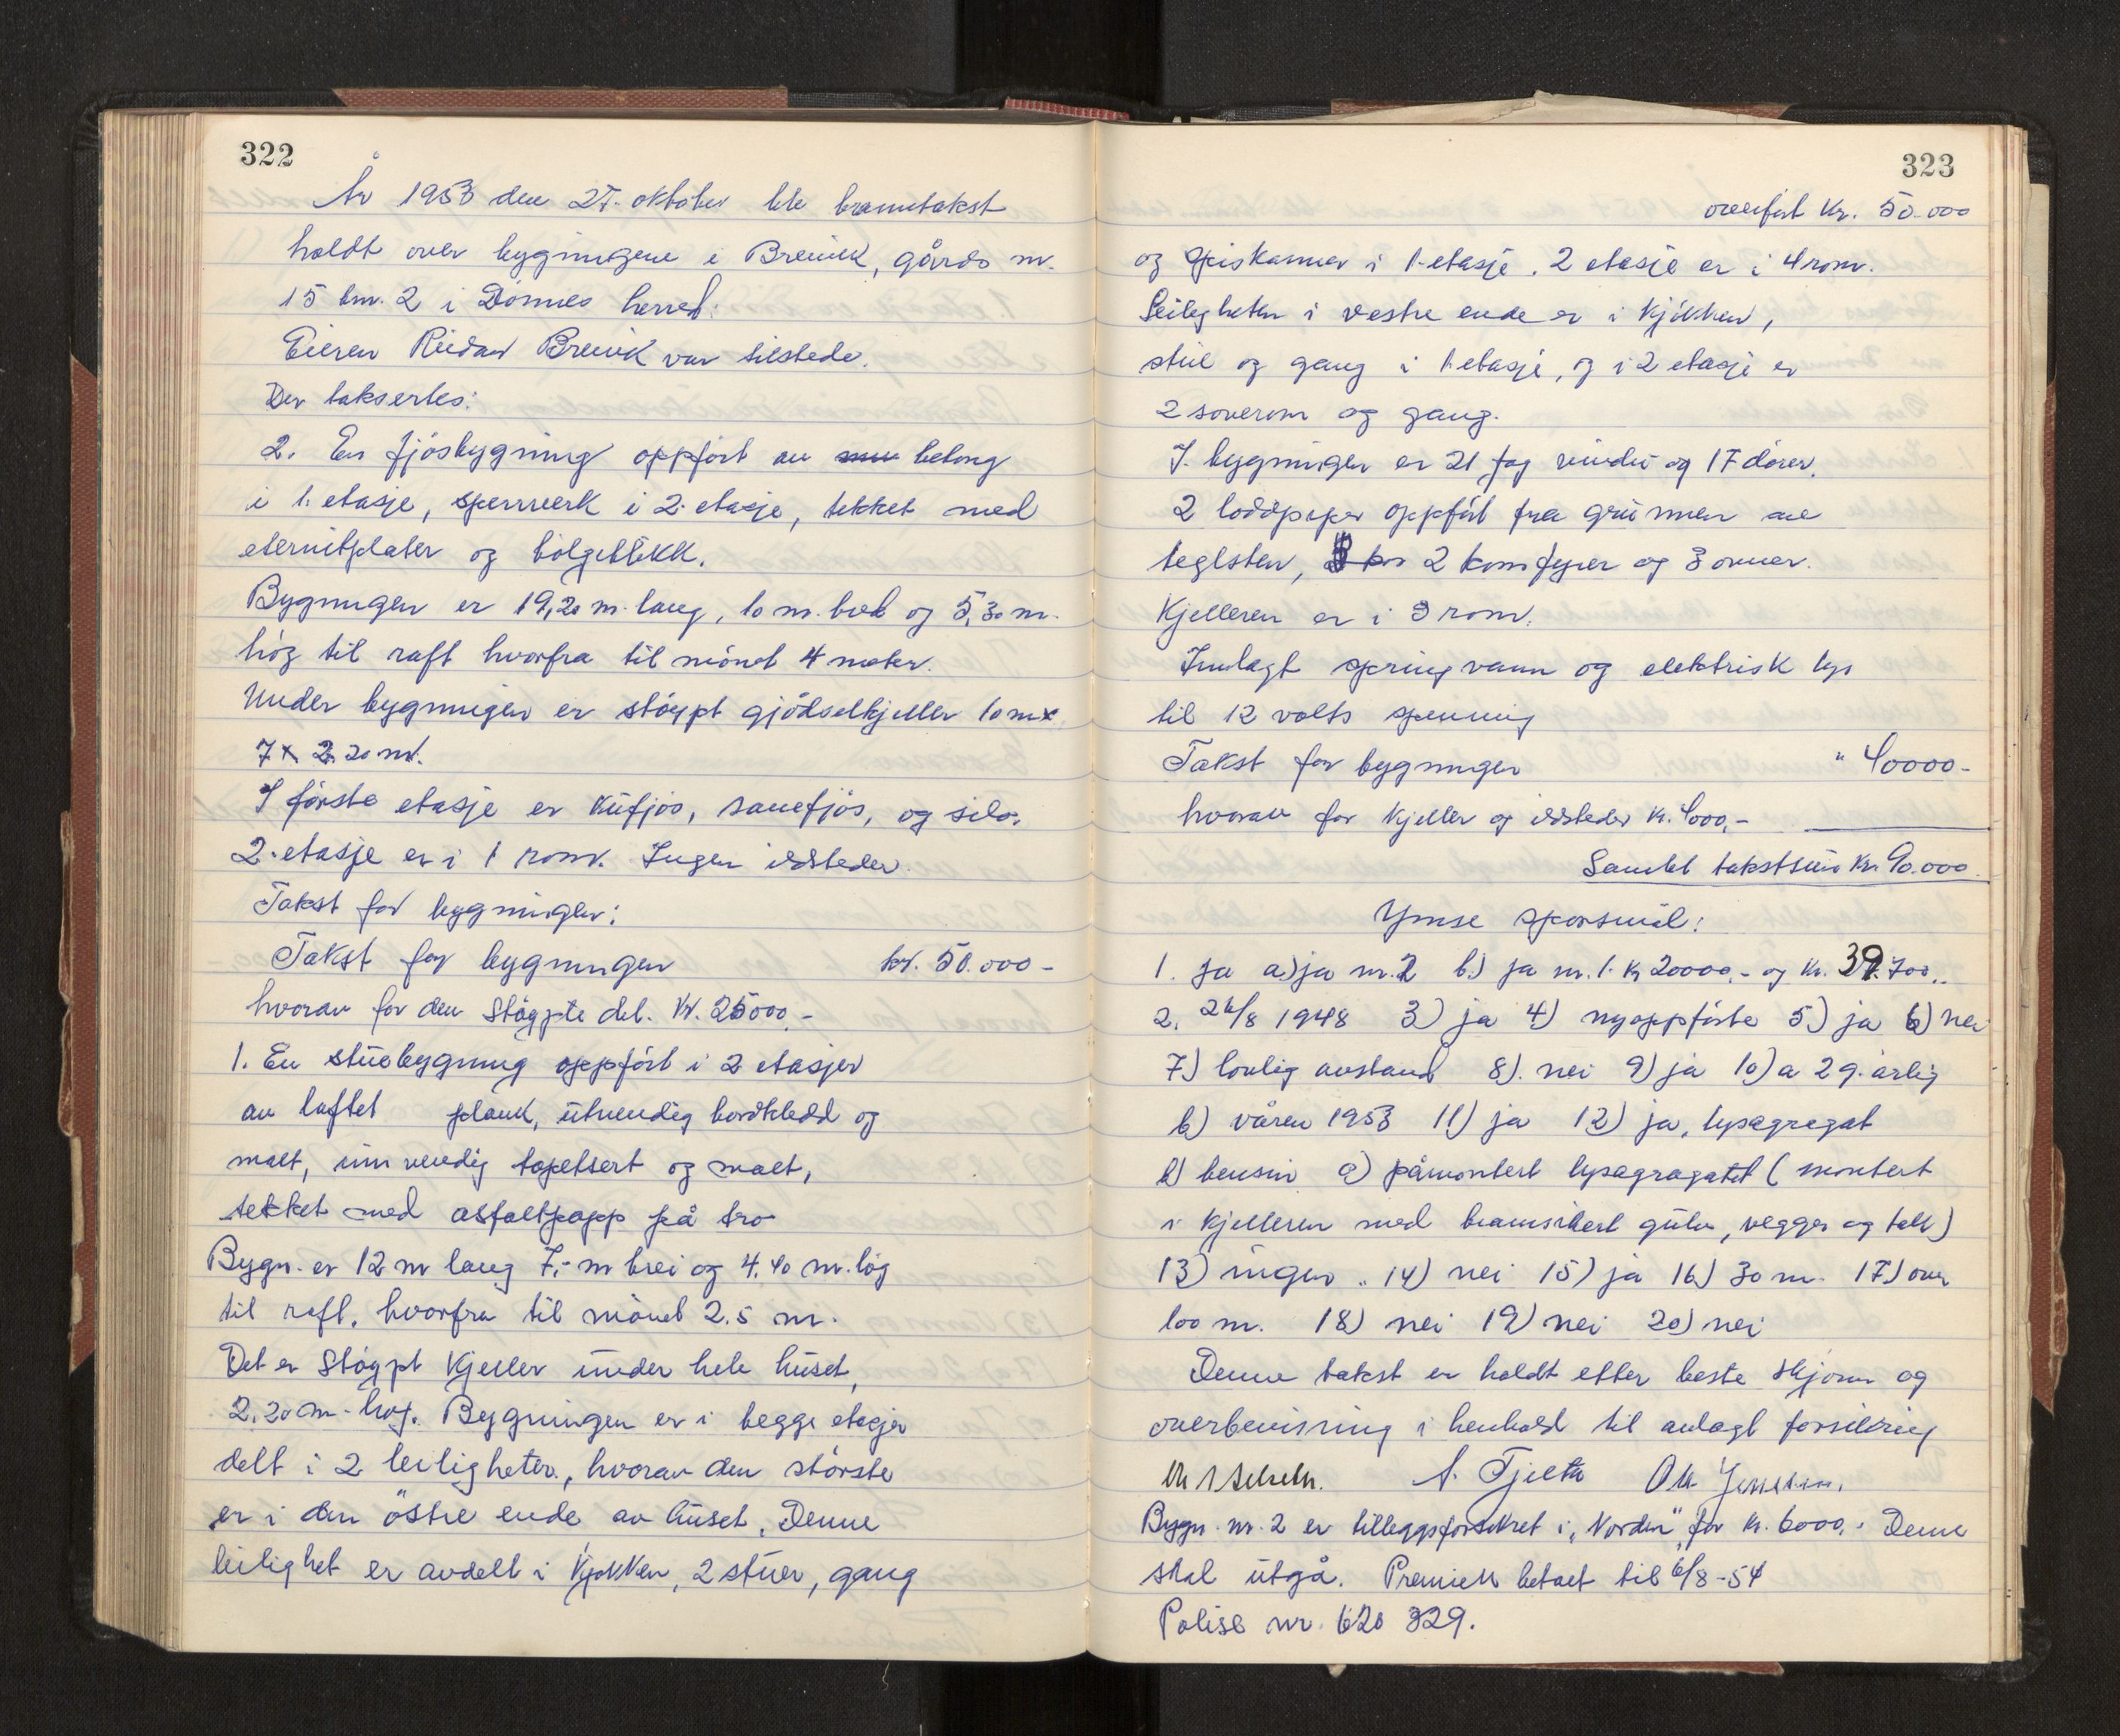 322
År 1953 den 27. oktober ble branntakst
holdt over bygningene i Breivik, gårds nr.
15 bnr. 2 i Dønnes herred.
Eieren Reidar Breivik var tilstede.
Der taksertes:
2. En fjøsbygning oppført av betong
i 1. etasje, sperrverk i 2. etasje, tekket med
eternitplater og bølgeblikk.
Bygningen er 19,20 m. lang, 10 m. bred og 5,30 m.
høg til raft hvorfra til mønet 4 meter.
Under bygningen er støypt gjødselkjeller 10 m x
7 x 2,20 m.
I første etasje er kufjøs, sauefjøs, og silo.
2. etasje er i 1 rom. Ingen ildsteder.
Takst for bygningen:
Takst for bygningen kr. 50.000-
hvorav for den støypte del. Kr. 25000,-
1. En stuebygning oppført i 2 etasjer
av laftet plank, utvendig bordkledd og
malt, innvendig tapetsert og malt,
tekket med asfaltpapp på tro
Bygn. er 12 m lang 7,- m brei og 4.40 m. høg
til raft, hvorfra til mønet 2.5 m.
Det er støypt kjeller under hele huset,
2,20 m. høg. Bygningen er i begge etasjer
delt i 2 leiligheter, hvorav den største
er i den østre ende av huset. Denne
leilighet er avdelt i kjøkken, 2 stuer, gang
323
overført Kr. 50.000
og spiskammer i 1. etasje. 2 etasje er i 4 rom.
Leiligheten i vestre ende er i kjøkken,
stue og gang i 1. etasje, og i 2 etasje er
2 soverom og gang.
I bygningen er 21 fag vindu og 17 dører.
2 loddpiper oppført fra grunnen av
teglsten, 2 komfyrer og 3 ovner.
Kjelleren er i 3 rom.
Innlagt springvann og elektrisk lys
til 12 volts spenning
Takst for bygningen " 40000-
hvorav for kjeller og ildsteder kr. 4000,-
Samlet takstsum Kr. 90.000.
Ymse spørsmål:
1. ja a) ja nr. 2 b.) ja nr. 1. Kr 20000,- og Kr. 39.700,-
2. 26/8 1948 3) ja 4) nyoppførte 5) ja 6) nei
7) lovlig avstand 8). nei 9) ja 10) a 2 g. årlig
b) våren 1953 11) ja 12) ja, lysagregat
b) bensin c) påmontert lysagragatet (montert
i kjelleren med brannsikert gulv, vegger og tak)
13) ingen. 14) nei 15) ja 16) 30 m. 17) over
100 m. 18) nei 19) nei 20) nei
Denne takst er holdt etter beste skjønn og
overbevisning i henhold til avlagt forsikring
A. Fjelta Ole Jensen.
Bygn. nr. 2 er tilleggsforsikret i "Norden" for kr. 6000,- Denne
skal utgå. Premien betalt til 6/8-54
Polise nr. 620 329.